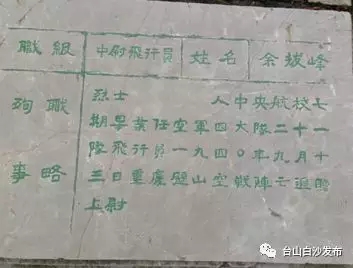 職級 中尉飛行員 姓名 余拔峰
殉職事略
烈士 人中央航校七
期畢業任空軍四大隊二十一
隊飛行員一九四0年九月十
三日重慶璧山空戰陣亡追贈
上尉
台山白沙发布